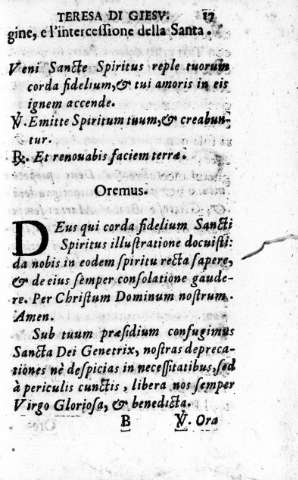 TERESA DI GIESV. 17
gine, e l'intercessione della Santa.
Veni Sancte Spiritus reple tuorum
corda fidelium, & tui amoris in eis
ignem accende.
℣. Emitte Spiritum tuum, & creabun-
tur.
℟. Et renouabis faciem terræ.
Oremus.
DEus qui corda fidelium Sancti
Spiritus illustratione docuisti:
da nobis in eodem spiritu recta sapere,
& de eius semper consolatione gaude-
re. Per Christum Dominum nostrum.
Amen.
Sub tuum præsidium confugimus
Sancta Dei Genetrix, nostras depreca-
tiones nè despicias in necessitatibus, sed
à periculis cunctis, libera nos semper
Virgo Gloriosa, & benedicta.
B ℣. Ora